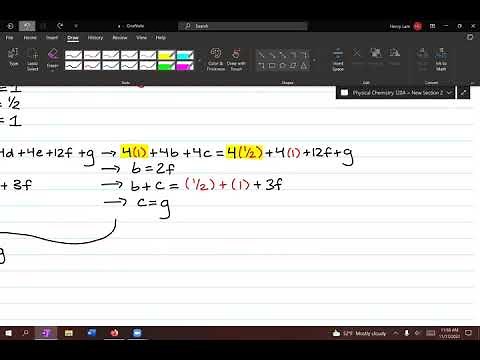 a - OneNote
Search
Henry Lam
File Home Insert Draw View Help
Eraser Lasso Select Insert Space
Color & Thickness
Draw with Touch
Shapes
Ink to Shape
Ink to Text
Ink to Math
Physical Chemistry 120A – New Section 2
= 1
= ½
= 1
4d+4e+12f+g → 4(1)+4b+4c = 4(½)+4(1)+12f+g
→ b=2f
+ 3f → b+c = (½)+(1)+3f
→ c=g
g
52°F Mostly cloudy
11:58 AM